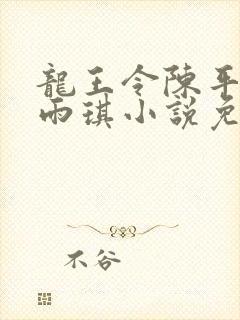 龍王令陳平
雨琪小說免
不谷